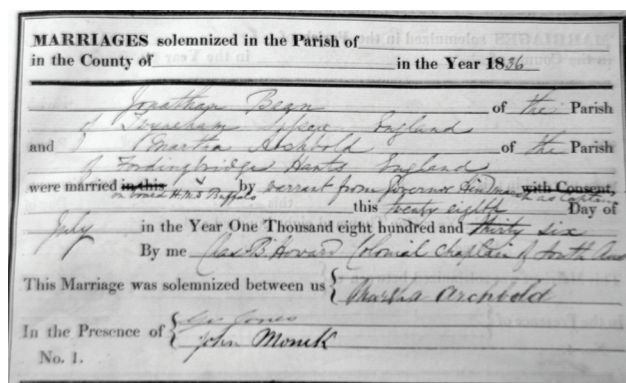 MARRIAGES solemnized in the Parish of
in the County of in the Year 1836
Jonathan Bean of the Parish
of England
and Martha Archbold of the Parish
of Fordingbridge Hants England
were married in this by warrant from Governor Hindmarsh as Captain with Consent,
on board H.M.S Buffalo this twenty eighth Day of
July in the Year One Thousand eight hundred and thirty six
By me Chas B Howard Colonial Chaplain of South Aus
This Marriage was solemnized between us Martha Archbold
In the Presence of Jones
John Monck
No. 1.